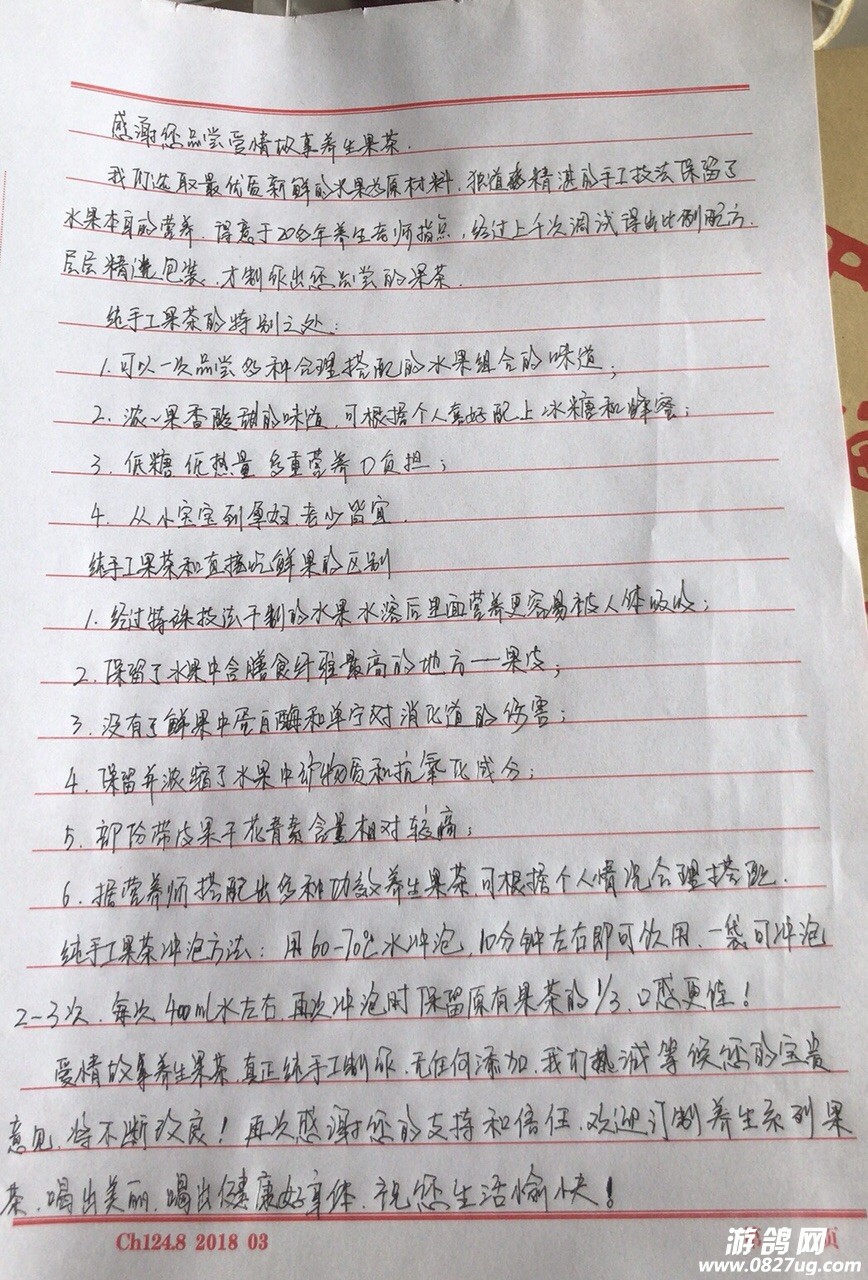 感谢您品尝爱情故事养生果茶.
我们选取最优质新鲜的水果为原材料，独道 精湛的手工技法保留了
水果本身的营养，得意于20多年养生老师指点，经过上千次调试得出比例配方.
层层精选包装，才制作出您品尝的果茶.
纯手工果茶的特别之处：
1. 可以一次品尝多种合理搭配的水果组合的味道；
2. 浓~果香酸甜的味道，可根据个人喜好配上冰糖和蜂蜜；
3. 低糖 低热量 多重营养 0负担；
4. 从小宝宝到孕妇，老少皆宜.
纯手工果茶和直接吃鲜果的区别
1. 经过特殊技法干制的水果 水溶后里面营养更容易被人体吸收；
2. 保留了水果中含膳食纤维最高的地方——果皮；
3. 没有了鲜果中蛋白酶和单宁对消化道的伤害；
4. 保留并浓缩了水果中矿物质和抗氧化成分；
5. 部份带皮果干花青素含量相对较高；
6. 据营养师搭配出多种功效养生果茶，可根据个人情况合理搭配.
纯手工果茶冲泡方法：用60-70℃水冲泡，10分钟左右即可饮用，一袋可冲泡
2-3次，每次400ml水左右，再次冲泡时保留原有果茶的1/3，口感更佳！
爱情故事养生果茶，真正纯手工制作，无任何添加，我们热诚等候您的宝贵
意见，将不断改良！再次感谢您的支持和信任，欢迎订制养生系列果
茶，喝出美丽，喝出健康好身体，祝您生活愉快！
Ch124.8 2018 03
第 页
游鸽网
www.0827ug.com